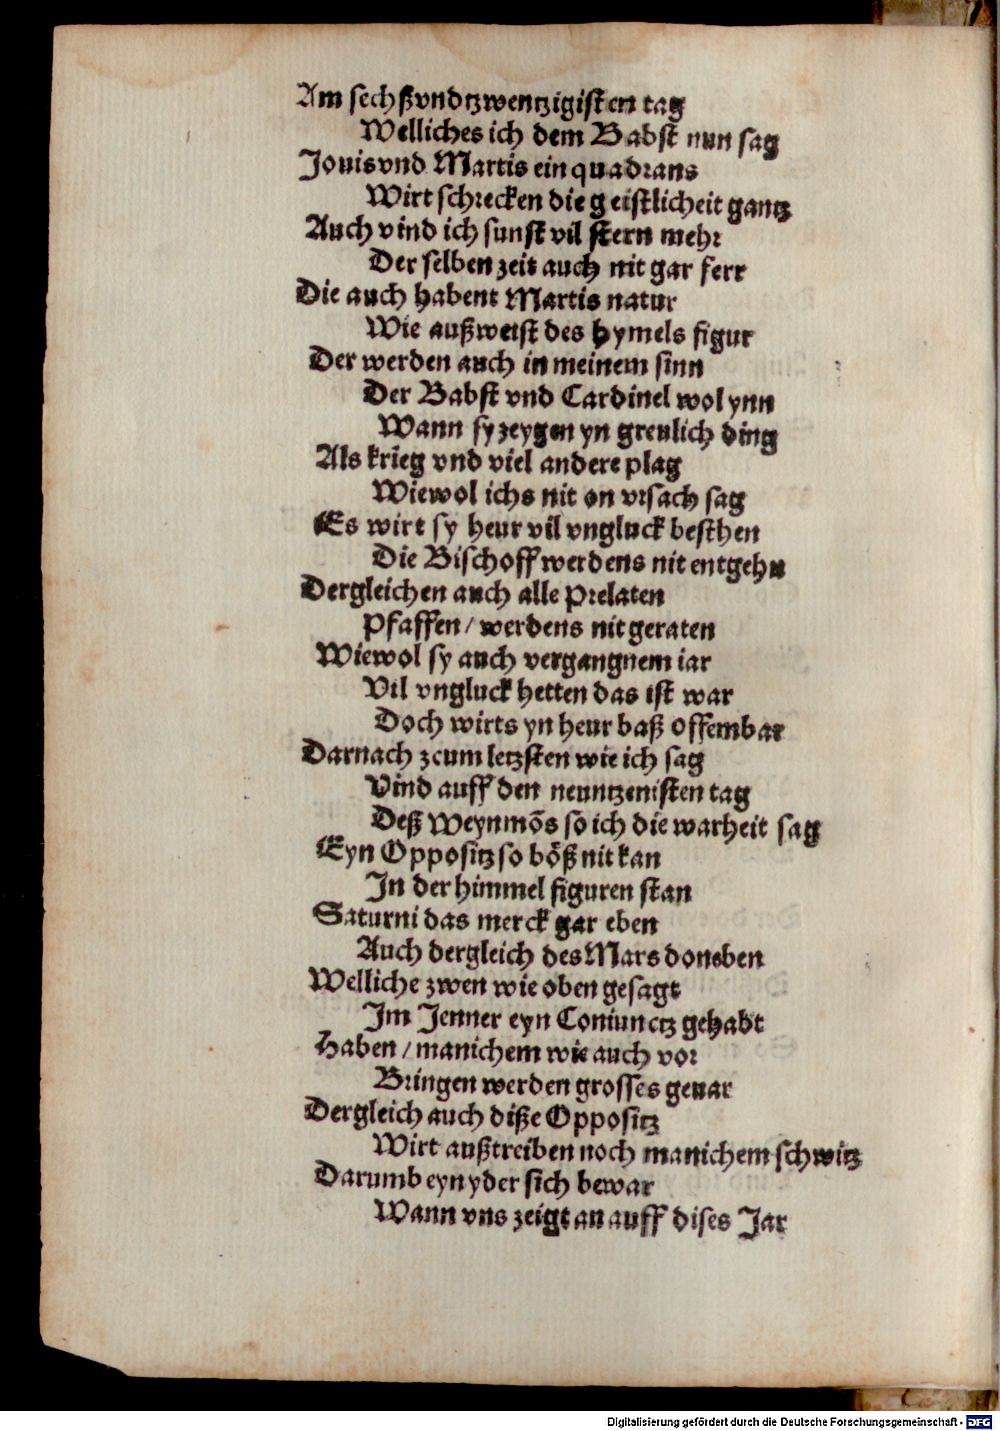 Am sechßvndtzwentzigisten tag
Welliches ich dem Babst nun sag
Jouis vnd Martis ein quadrans
Wirt schrecken die geistlicheit gantz
Auch vind ich sunst vil stern mehr
Der selben zeit auch nit gar ferr
Die auch habent Martis natur
Wie außweist des hymels figur
Der werden auch in meinem sinn
Der Babst vnd Cardinel wol ynn
Wann sy zeygen yn greulich ding
Als krieg vnd viel andere plag
Wiewol ichs nit on vrsach sag
Es wirt sy heur vil vngluck besthen
Die Bischoff werdens nit entgehn
Dergleichen auch alle Prelaten
Pfaffen / werdens nit geraten
Wiewol sy auch vergangnem iar
Vil vngluck hetten das ist war
Doch wirts yn heur baß offembar
Darnach zcum letzsten wie ich sag
Vind auff den neuntzenisten tag
Deß Weynmōs so ich die warheit sag
Eyn Oppositz so bößnit kan
In der himmel figuren stan
Saturni das merck gar eben
Auch dergleich des Mars doneben
Welliche zwen wie oben gesagt
Im Jenner eyn Coniunctz gehabt
Haben / manichem wie auch vor
Bringen werden grosses geuar
Dergleich auch diße Oppositz
Wirt außtreiben noch manichem schwitz
Darumb eyn yder sich bewar
Wann vns zeigt an auff dises Jar
Digitalisierung gefördert durch die Deutsche Forschungsgemeinschaft - DFG